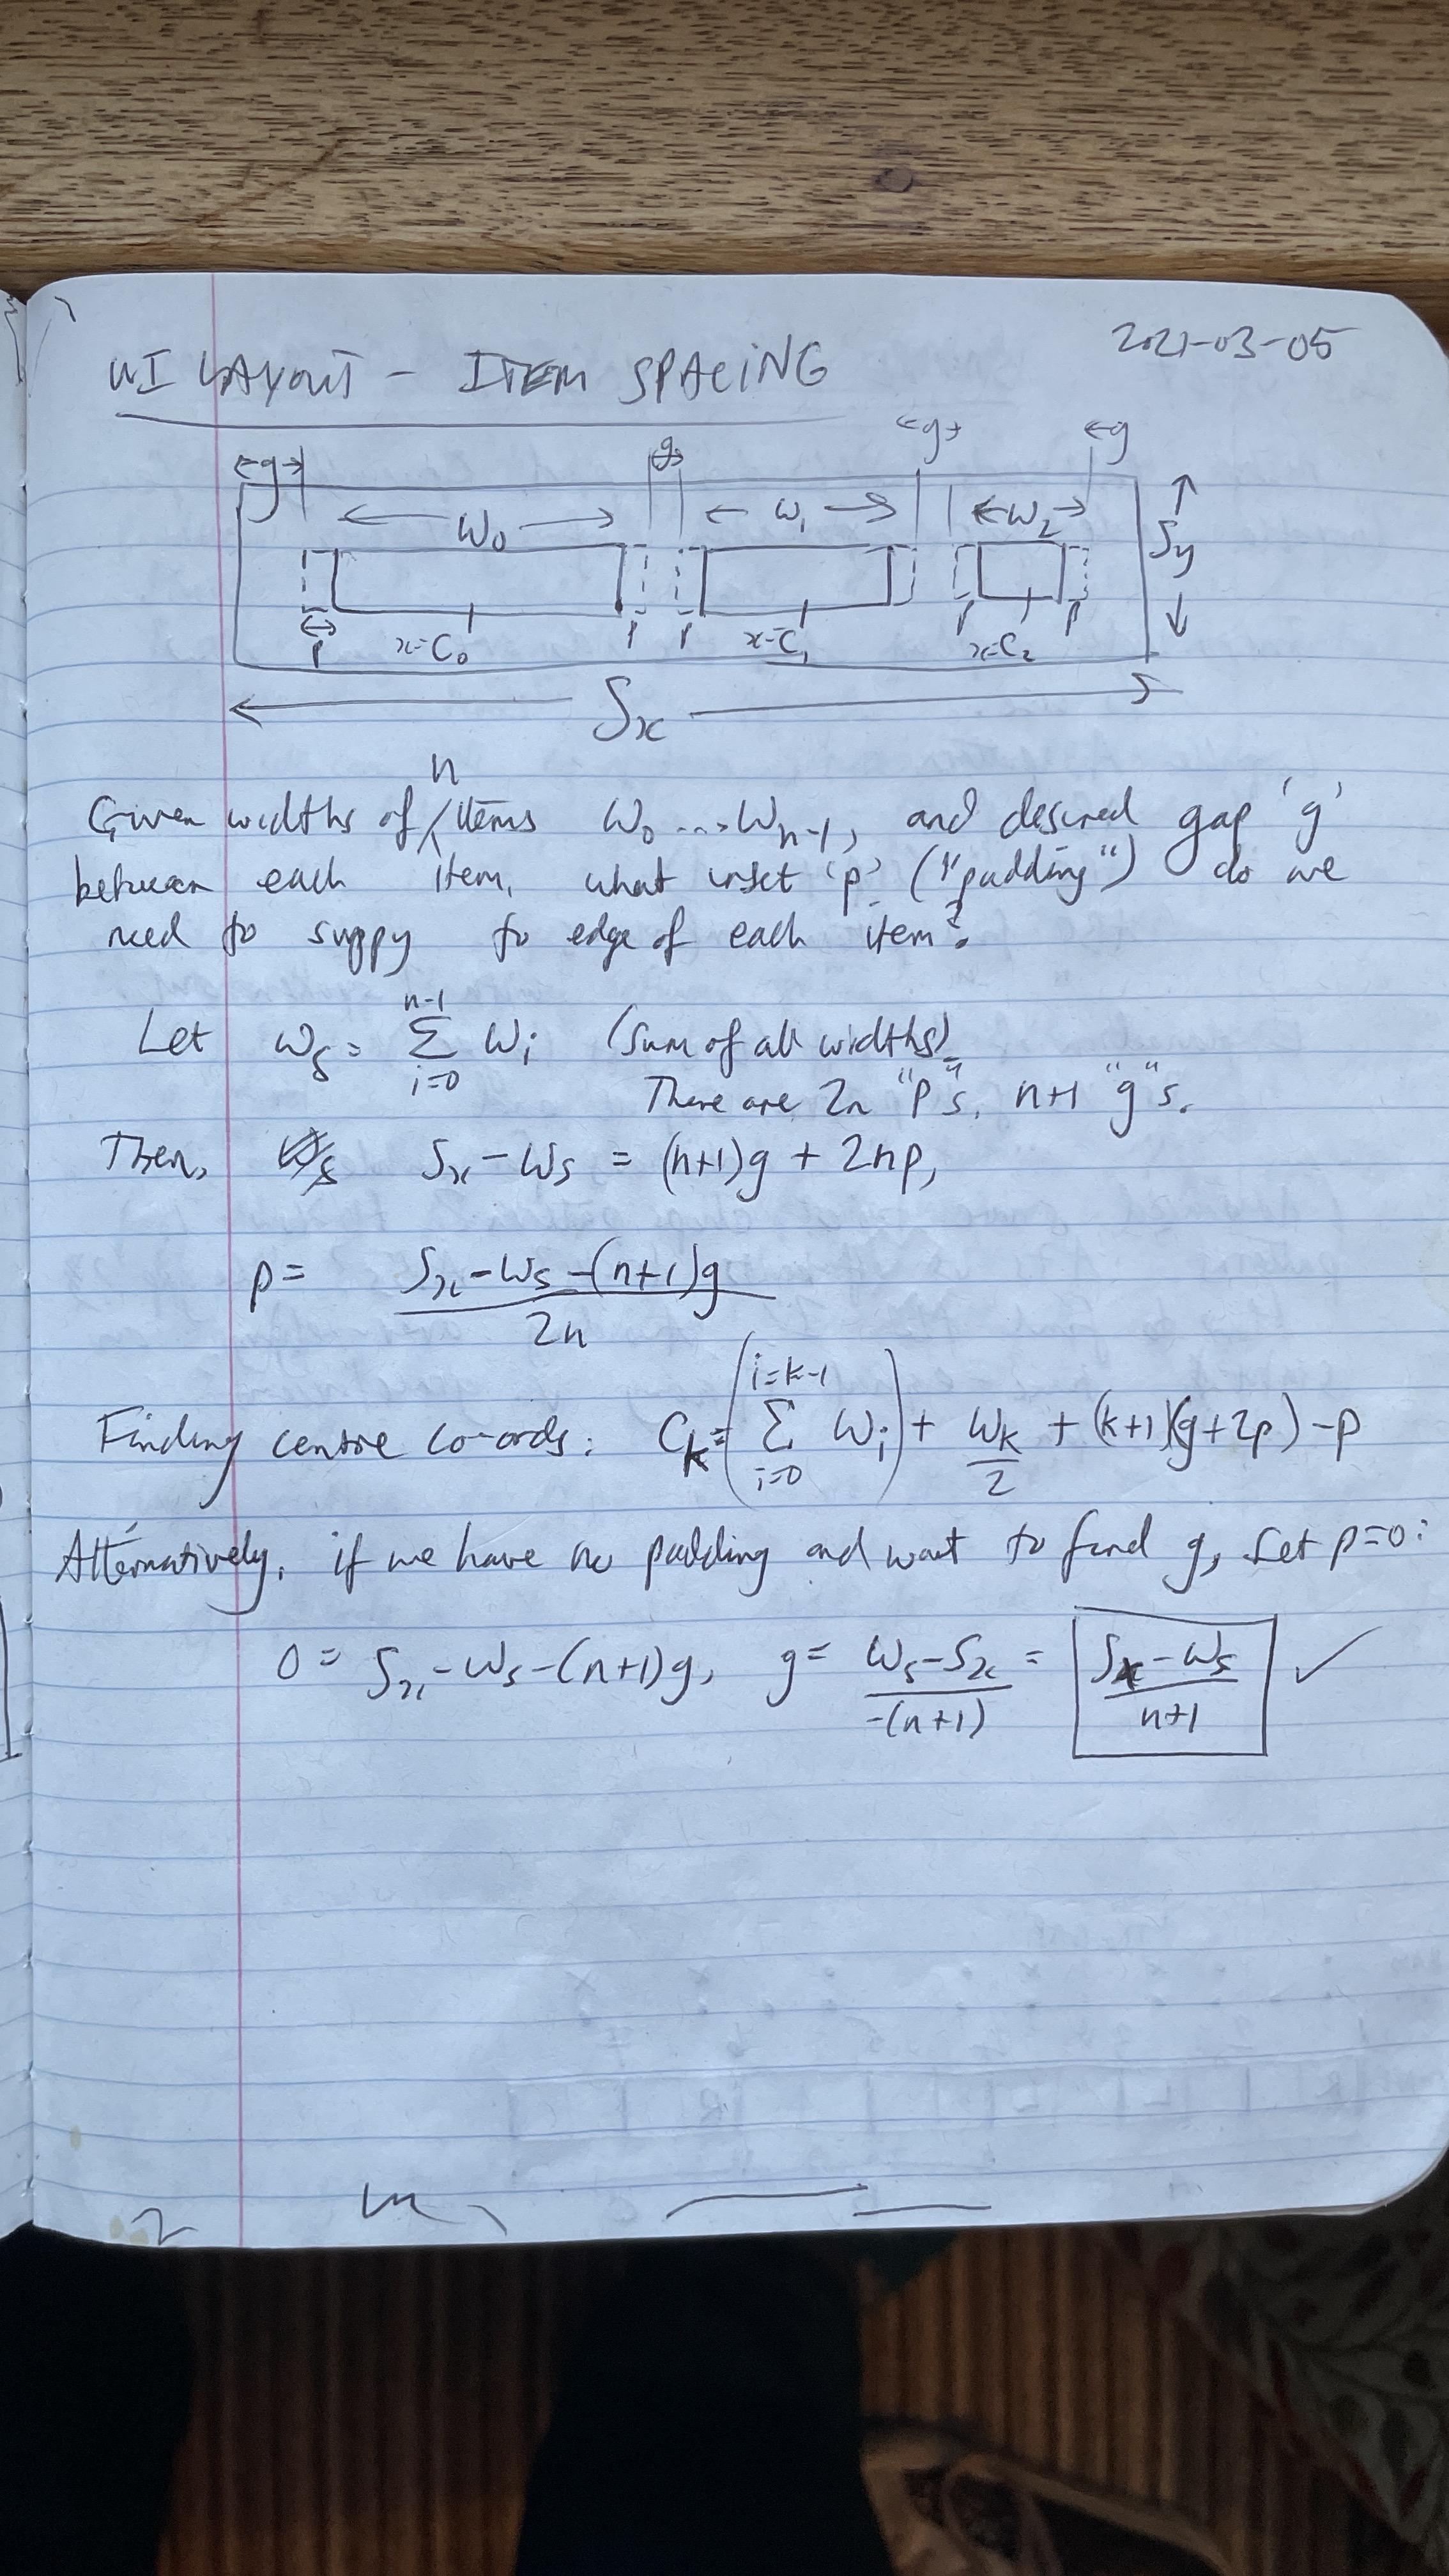 2021-03-05
UI LAYOUT - ITEM SPACING
←g→ g ←g→ ←g
← W₀ → ← W₁ → ← W₂ →
↑ Sy ↓
p x=C₀ p p x=C₁ p x=C₂ p
← Sx →
n
Given widths of ∧ items W₀ ... Wₙ₋₁, and desired gap 'g'
between each item, what inset 'p' ("padding") do we
need to suppy to edge of each item?
Let Ws = Σ_{i=0}^{n-1} Wi (sum of all widths)
There are 2n "p"s, n+1 "g"s.
Then, Sx - Ws = (n+1)g + 2np,
p = (Sx - Ws - (n+1)g) / 2n
Finding centre co-ords: Ck = (Σ_{i=0}^{i=k-1} Wi) + Wk/2 + (k+1)(g+2p) - p
Alternatively, if we have no padding and want to find g, let p=0:
0 = Sx - Ws - (n+1)g, g = (Ws - Sx) / -(n+1) = (Sx - Ws) / n+1 ✓